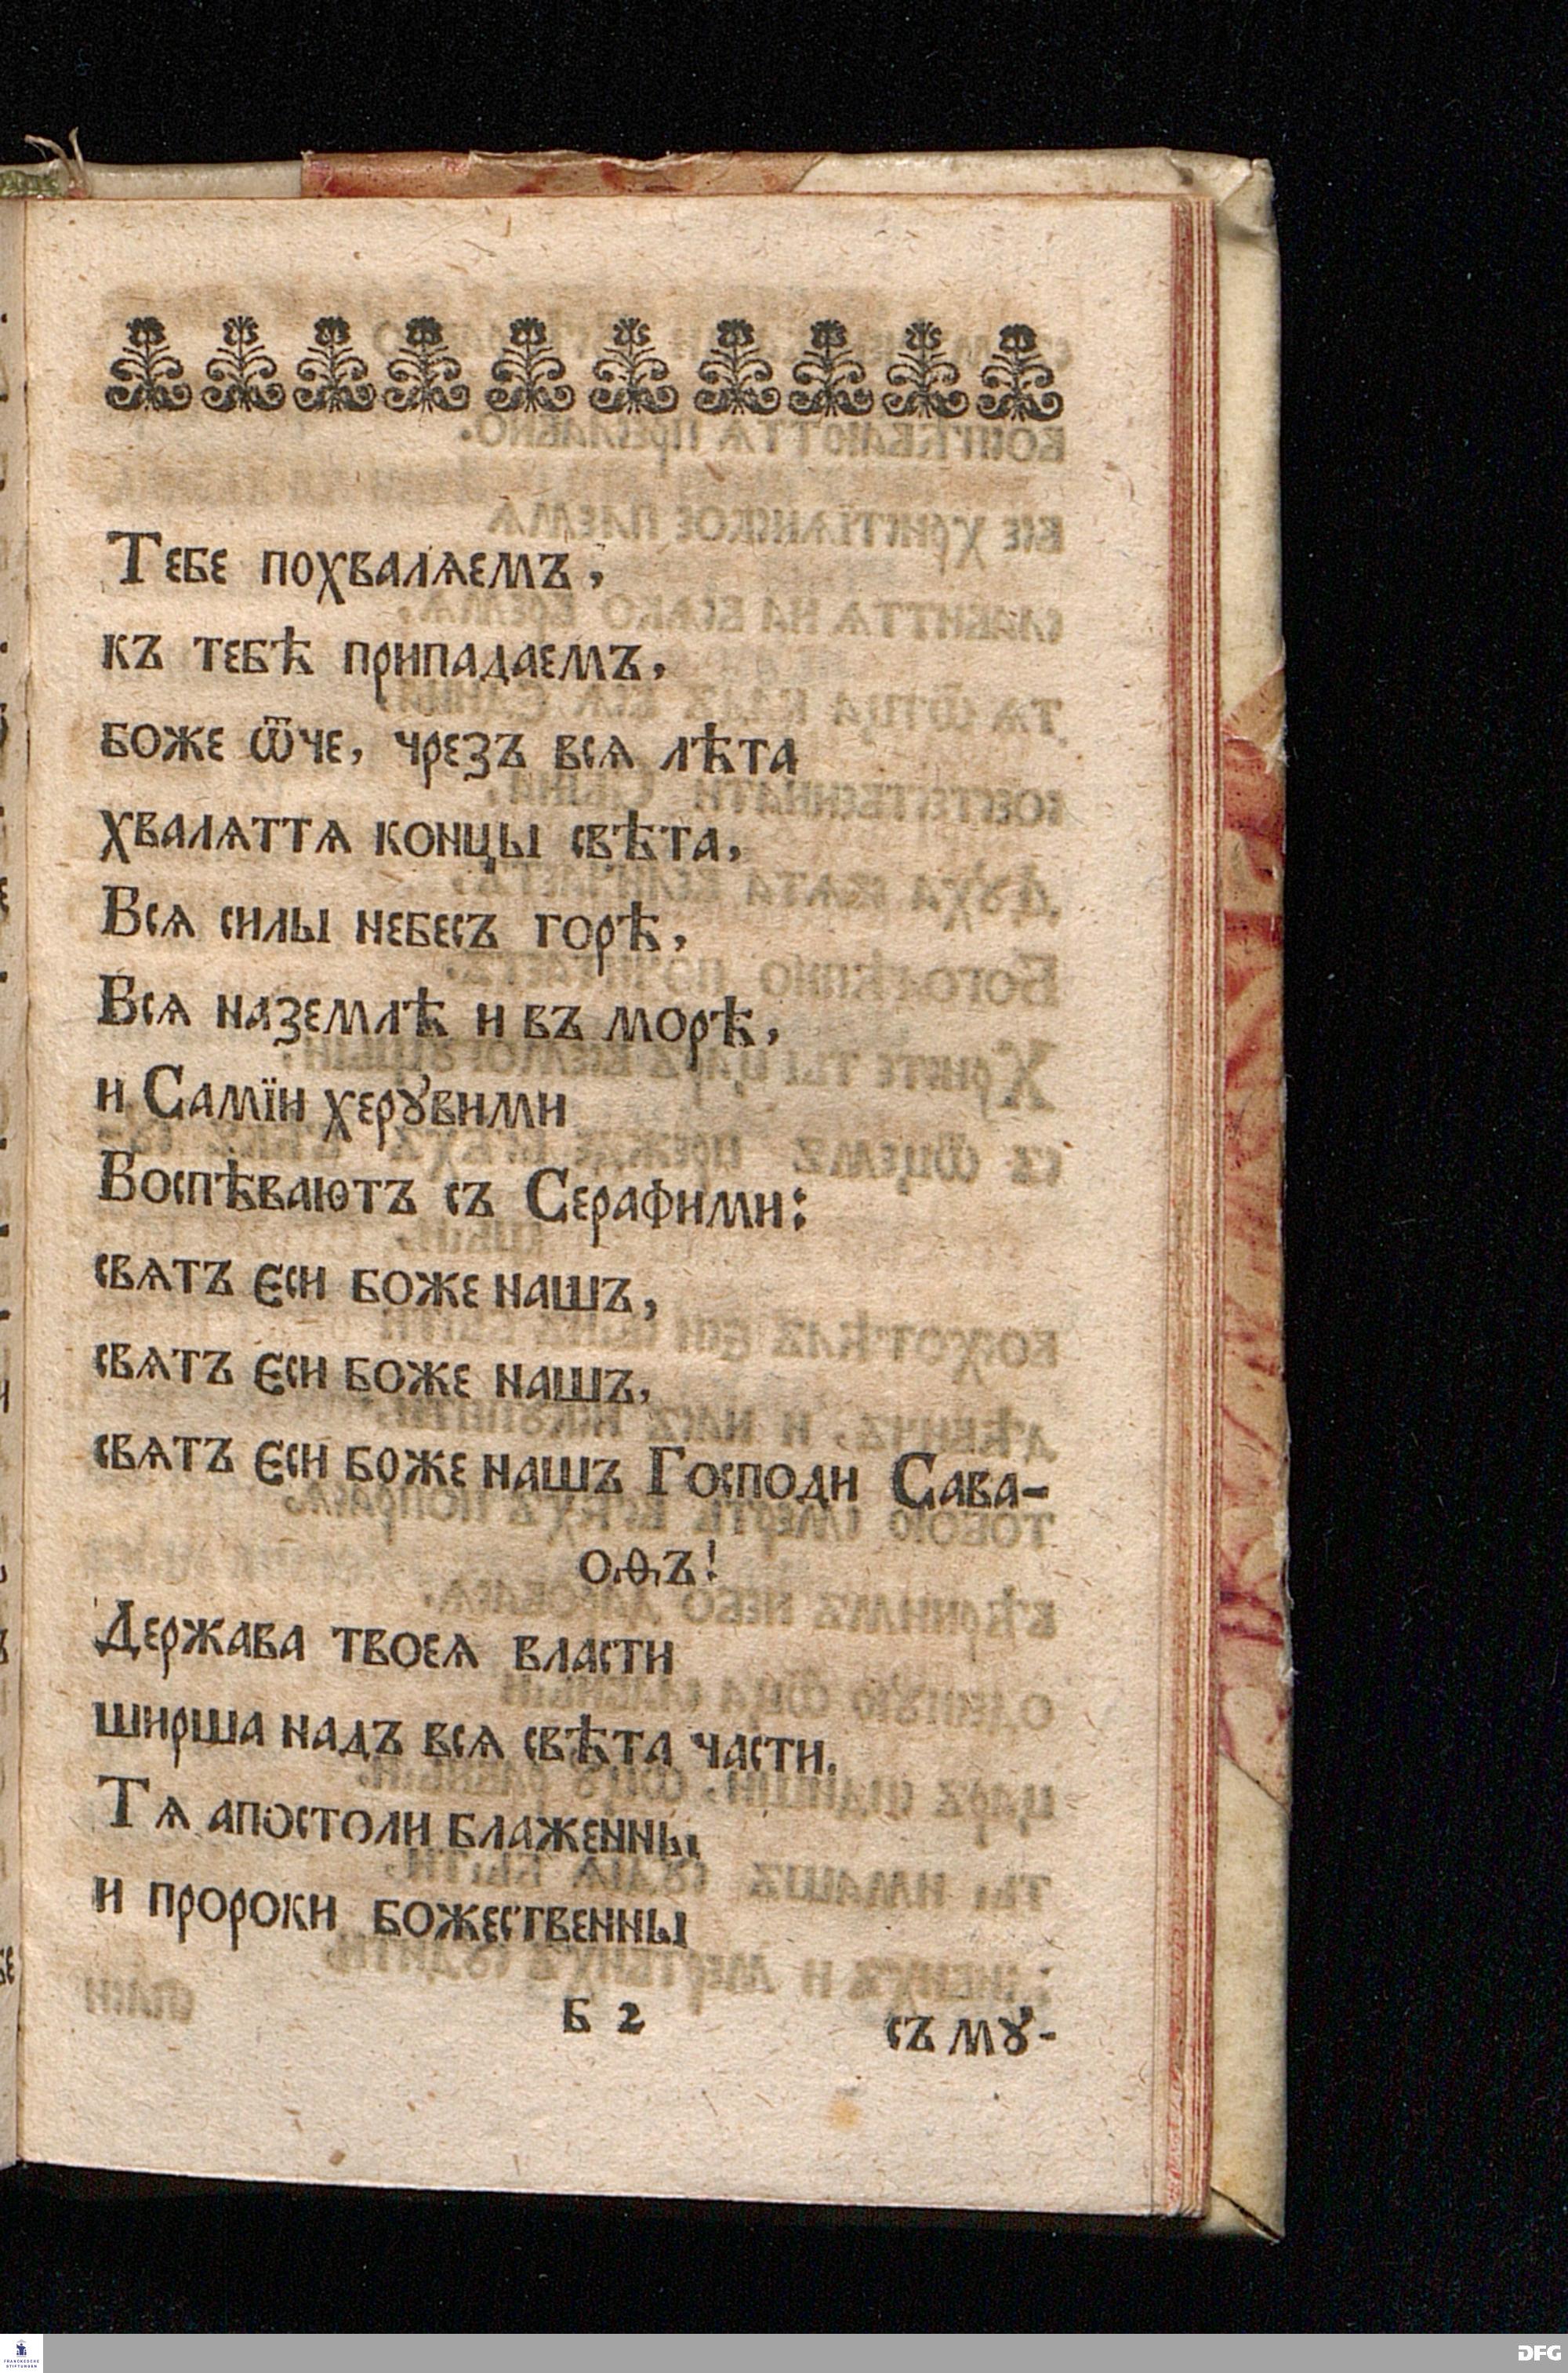 Тебе похвалѧемъ,
къ тебѣ припадаемъ,
боже ѿче, чрезъ всѧ лѣта
хвалѧттѧ концы свѣта,
Всѧ силы небесъ горѣ,
Всѧ наземлѣ и въ морѣ,
и Самїи херꙋвими
Воспѣваютъ съ Серафими:
свѧтъ єси боже нашъ,
свѧтъ єси боже нашъ,
свѧтъ єси боже нашъ Господи Сава-
оѳъ!
Держава твоеѧ власти
ширша надъ всѧ свѣта части.
Тѧ апостоли блаженны
и пророки божественны
Б 2 съ мꙋ-
FRANCKESCHE
STIFTUNGEN
DFG